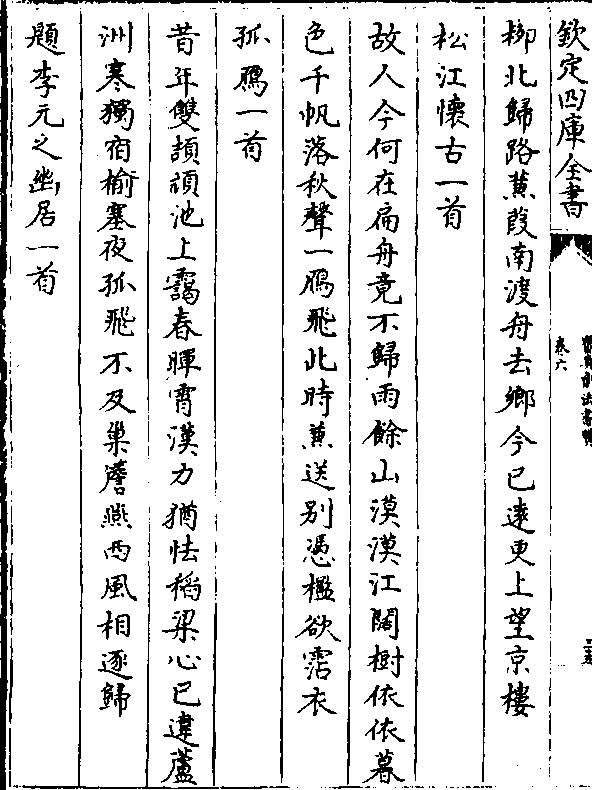 欽定四庫全書
卷六
柳北歸路蒹葭南渡舟去鄉今已遠更上望京樓
松江懷古一首
故人今何在扁舟竟不歸雨餘山漠漠江闊樹依依暮
色千帆落秋聲一鴈飛此時兼送別憑檻欲霑衣
孤鴈一首
昔年雙頡頏池上靄春暉霄漢力猶怯稻粱心已違蘆
洲寒獨宿榆塞夜孤飛不及巢簷燕西風相逐歸
題李元之幽居一首